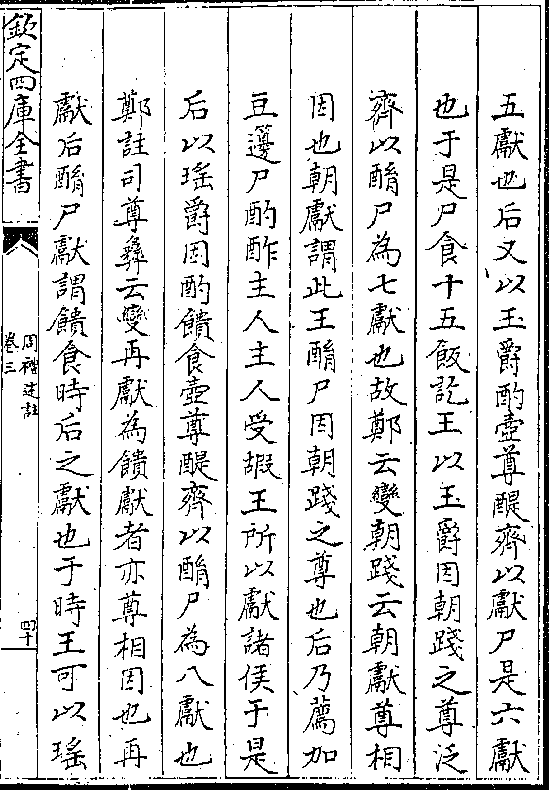 五獻也后又以玉爵酌壺尊醍齊以獻尸是六獻
也于是尸食十五飯訖王以玉爵因朝踐之尊泛
齊以酳尸為七獻也故鄭云變朝踐云朝獻尊相
因也朝獻謂此王酳尸因朝踐之尊也后乃薦加
豆籩尸酌酢主人主人受嘏王所以獻諸侯于是
后以瑤爵因酌饋食壺尊醍齊以酳尸為八獻也
鄭註司尊彝云變再獻為饋獻者亦尊相因也再
獻后酳尸獻謂饋食時后之獻也于時王可以瑤
欽定四庫全書
周禮述註
卷三
四十